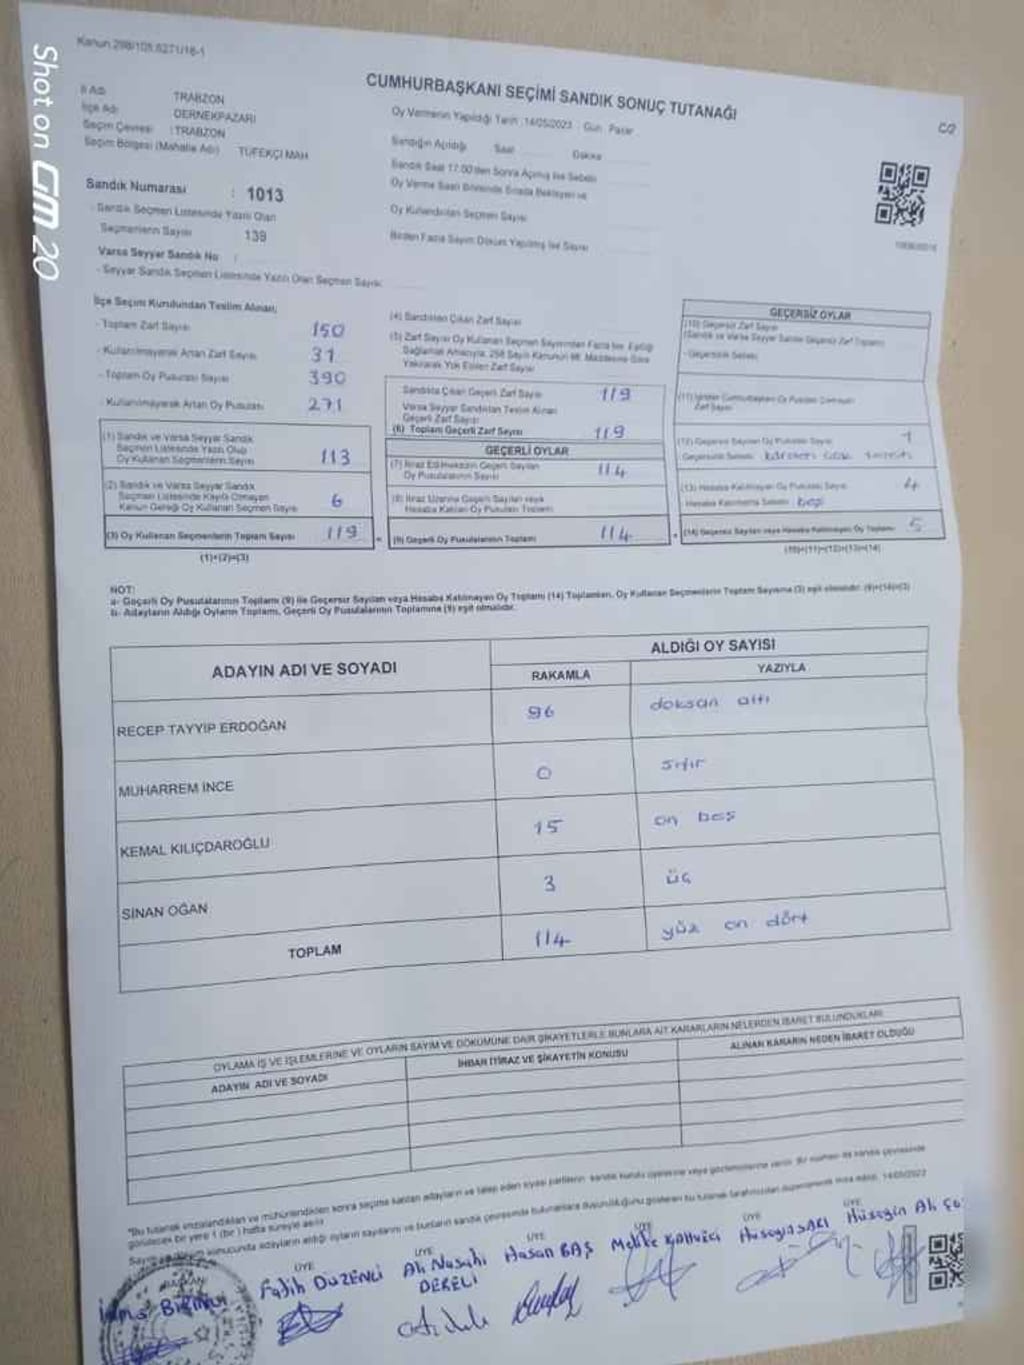 Shot on GM 20
Kanun 298/105,6271/16-1
CUMHURBAŞKANI SEÇİMİ SANDIK SONUÇ TUTANAĞI
C/2
İl Adı TRABZON
İlçe Adı DERNEKPAZARI
Seçim Çevresi : TRABZON
Seçim Bölgesi (Mahalle Adı) TÜFEKÇİ MAH
Oy Vermenin Yapıldığı Tarih :14/05/2023 Gün: Pazar
Sandığın Açıldığı Saat Dakika
Sandık Saat 17:00'den Sonra Açılmış İse Sebebi
Oy Verme Saati Bitiminde Sırada Bekleyen ve
Oy Kullandırılan Seçmen Sayısı
Birden Fazla Sayım Döküm Yapılmış İse Sayısı
Sandık Numarası : 1013
- Sandık Seçmen Listesinde Yazılı Olan
Seçmenlerin Sayısı 139
Varsa Seyyar Sandık No :
- Seyyar Sandık Seçmen Listesinde Yazılı Olan Seçmen Sayısı:
İlçe Seçim Kurulundan Teslim Alınan;
- Toplam Zarf Sayısı 150
- Kullanılmayarak Artan Zarf Sayısı 31
- Toplam Oy Pusulası Sayısı 390
- Kullanılmayarak Artan Oy Pusulası 271
(1) Sandık ve Varsa Seyyar Sandık
Seçmen Listesinde Yazılı Olup
Oy Kullanan Seçmenlerin Sayısı 113
(2) Sandık ve Varsa Seyyar Sandık
Seçmen Listesinde Kayıtlı Olmayan
Kanun Gereği Oy Kullanan Seçmen Sayısı 6
(3) Oy Kullanan Seçmenlerin Toplam Sayısı 119
(1)+(2)=(3)
(4) Sandıktan Çıkan Zarf Sayısı
(5) Zarf Sayısı Oy Kullanan Seçmen Sayısından Fazla İse, Eşitliği
Sağlamak Amacıyla, 298 Sayılı Kanunun 98. Maddesine Göre
Yakılarak Yok Edilen Zarf Sayısı
Sandıkta Çıkan Geçerli Zarf Sayısı 119
Varsa Seyyar Sandıktan Teslim Alınan
Geçerli Zarf Sayısı
(6) Toplam Geçerli Zarf Sayısı 119
GEÇERLİ OYLAR
(7) İtiraz Edilmeksizin Geçerli Sayılan
Oy Pusulalarının Sayısı 114
(8) İtiraz Üzerine Geçerli Sayılan veya
Hesaba Katılan Oy Pusulası Toplamı
(9) Geçerli Oy Pusulalarının Toplamı 114
GEÇERSİZ OYLAR
(10) Geçersiz Zarf Sayısı
(Sandık ve Varsa Seyyar Sandık Geçersiz Zarf Toplamı)
- Geçersizlik Sebebi
Zarf Sayısı
(12) Geçersiz Sayılan Oy Pusulası Sayısı 1
Geçersizlik Sebebi
(13) Hesaba Katılmayan Oy Pusulası Sayısı 4
Hesaba Katılmama Sebebi boş
(14) Geçersiz Sayılan veya Hesaba Katılmayan Oy Toplamı 5
(10)+(11)+(12)+(13)=(14)
NOT:
a- Geçerli Oy Pusulalarının Toplamı (9) ile Geçersiz Sayılan veya Hesaba Katılmayan Oy Toplamı (14) Toplamları, Oy Kullanan Seçmenlerin Toplam Sayısına (3) eşit olmalıdır. (9)+(14)=(3)
b- Adayların Aldığı Oyların Toplamı, Geçerli Oy Pusulalarının Toplamına (9) eşit olmalıdır.
ADAYIN ADI VE SOYADI ALDIĞI OY SAYISI
RAKAMLA YAZIYLA
RECEP TAYYİP ERDOĞAN 96 doksan altı
MUHARREM İNCE 0 sıfır
KEMAL KILIÇDAROĞLU 15 on beş
SİNAN OĞAN 3 üç
TOPLAM 114 yüz on dört
OYLAMA İŞ VE İŞLEMLERİNE VE OYLARIN SAYIM VE DÖKÜMÜNE DAİR ŞİKAYETLERLE BUNLARA AİT KARARLARIN NELERDEN İBARET BULUNDUKLARI
ADAYIN ADI VE SOYADI İHBAR İTİRAZ VE ŞİKAYETİN KONUSU ALINAN KARARIN NEDEN İBARET OLDUĞU
*Bu tutanak imzalandıktan ve mühürlendikten sonra seçime katılan adayların ve talep eden siyasi partilerin sandık kurulu üyelerine veya gözlemcilerine verilir. Bir nüshası da sandık çevresinde
görülecek bir yere 1 (bir) hafta süreyle asılır
Sayım döküm sonucunda adayların aldığı oyların sayılarını ve bunların sandık çevresinde bulunanlara duyurulduğunu gösteren bu tutanak tarafımızdan düzenlenerek imza edildi. 14/05/2023
BAŞKAN ÜYE ÜYE ÜYE ÜYE ÜYE ÜYE
Fatih DÜZENLİ Ali Nasuhi DERELİ Hasan BAŞ Hüseyin SARI Hüseyin Ali